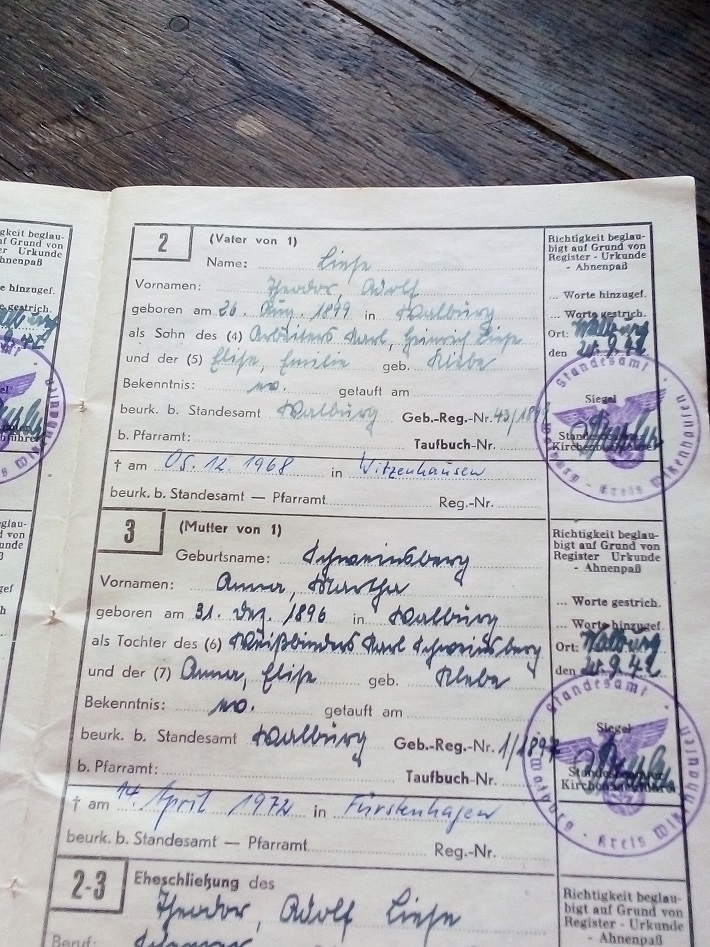 2
(Vater von 1)
Name: Liese
Vornamen: Theodor, Adolf
geboren am 26. Aug. 1899 in Walburg
als Sohn des (4) Arbeiters Karl, Heinrich Liese
und der (5) Elise, Emilie geb. Klebe
Bekenntnis: ev. getauft am
beurk. b. Standesamt Walburg Geb.-Reg.-Nr. 43/1899
b. Pfarramt: Taufbuch-Nr.
† am 05.12.1968 in Witzenhausen
beurk. b. Standesamt — Pfarramt Reg.-Nr.
Richtigkeit beglau-
bigt auf Grund von
Register - Urkunde
- Ahnenpaß
... Worte hinzugef.
... Worte gestrich.
Ort: Walburg
den 20.9.42
Siegel
Standesbeamter
Kirchenbuchführer
Standesamt Walburg - Kreis Witzenhausen
3
(Mutter von 1)
Geburtsname: Schweinsberg
Vornamen: Anna, Martha
geboren am 31. Dez. 1896 in Walburg
als Tochter des (6) Weißbinders Karl Schweinsberg
und der (7) Anna, Elise geb. Klebe
Bekenntnis: ev. getauft am
beurk. b. Standesamt Walburg Geb.-Reg.-Nr. 1/1897
b. Pfarramt: Taufbuch-Nr.
† am 14. April 1972 in Fürstenhagen
beurk. b. Standesamt — Pfarramt Reg.-Nr.
Richtigkeit beglau-
bigt auf Grund von
Register - Urkunde
- Ahnenpaß
... Worte gestrich.
... Worte hinzugef.
Ort: Walburg
den 20.9.42
Siegel
Standesbeamter
Kirchenbuchführer
Standesamt Walburg - Kreis Witzenhausen
2-3
Eheschließung des
Theodor, Adolf Liese
Beruf:
Richtigkeit beglau-
bigt auf Grund von
Register - Urkunde
- Ahnenpaß